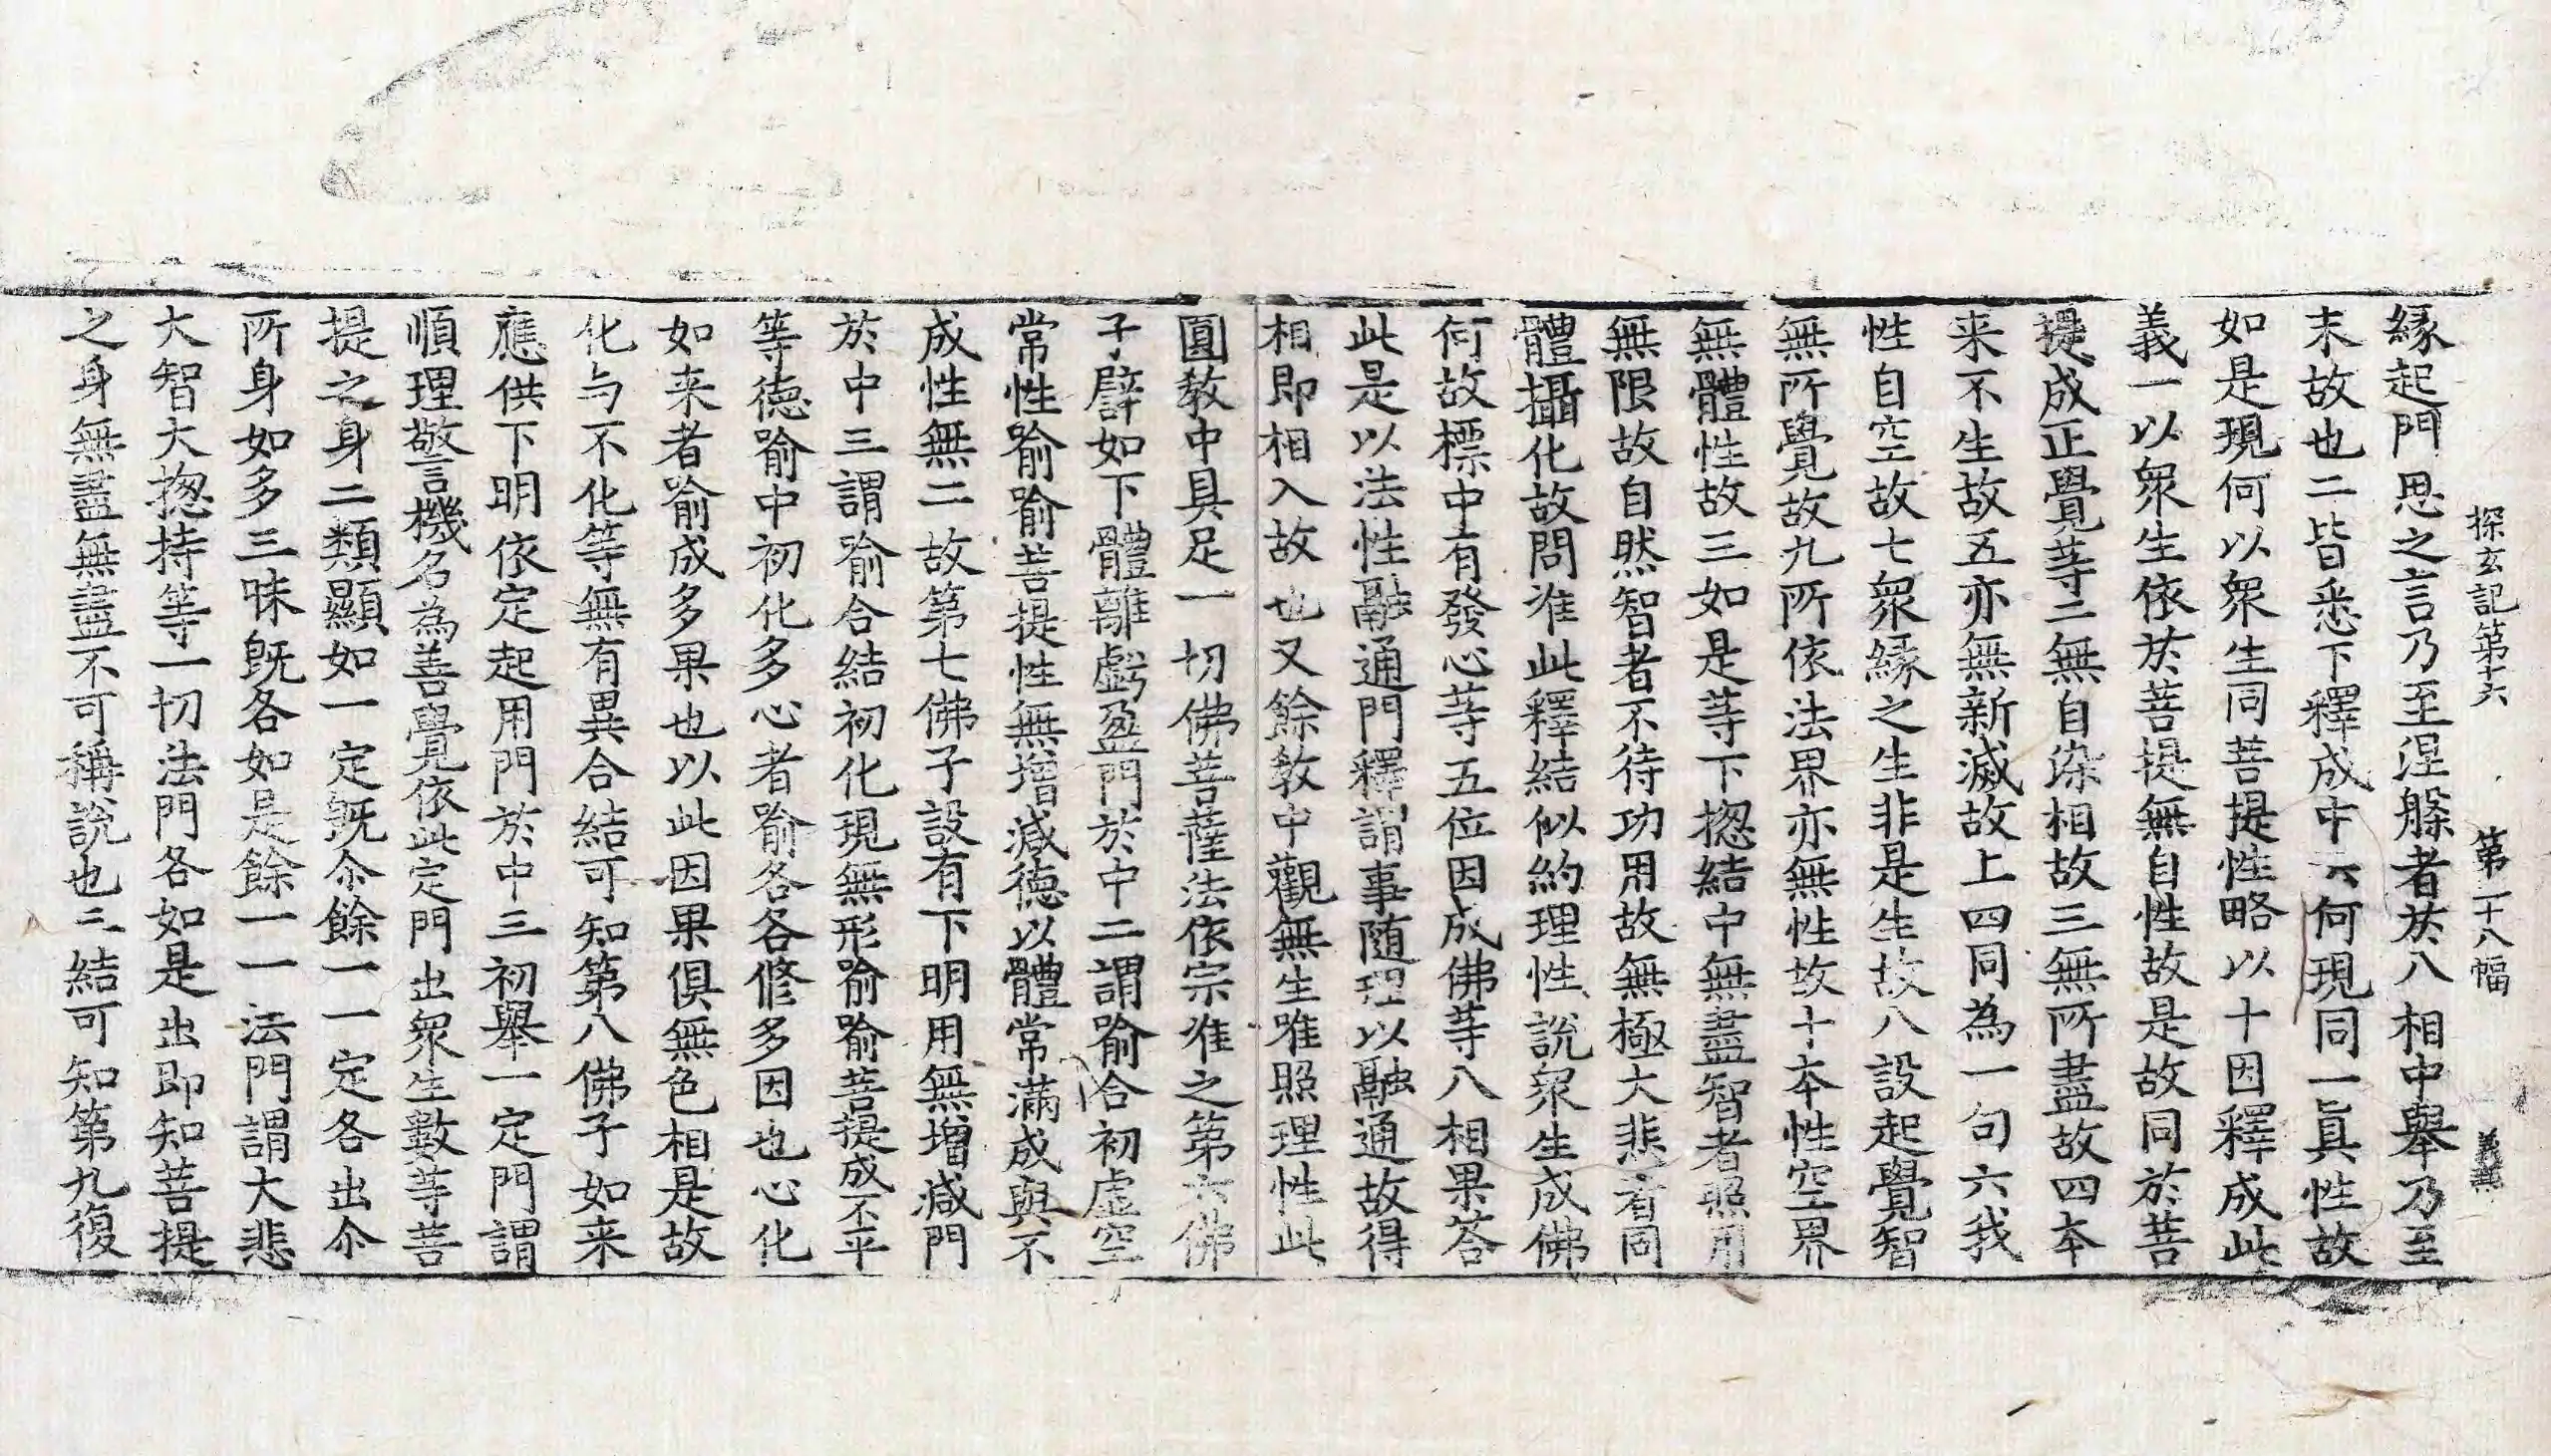 探玄記第十六 第二十八幅 義
縁起門思之言乃至涅槃者於八相中舉乃至
末故也二皆悉下釋成中云何現同一真性故
如是現何以衆生同菩提性略以十因釋成此
義一以衆生依於菩提無自性故是故同於菩
提成正覺等二無自染相故三無所盡故四本
来不生故五亦無新滅故上四同為一句六我
性自空故七衆縁之生非是生故八設起覺智
無所覺故九所依法界亦無性故十本性空界
無體性故三如是等下揔結中無盡智者照用
無限故自然智者不待功用故無極大悲者同
體攝化故問准此釋結似約理性說衆生成佛
何故標中有發心等五位因成佛等八相果荅
此是以法性融通門釋謂事随理以融通故得
相即相入故也又餘教中觀無生唯照理性此
圓教中具足一切佛菩薩法依宗准之第六佛
子譬如下體離虧盈門於中二謂喻合初虛空
常性喻喻菩提性無增減德以體常滿成與不
成性無二故第七佛子設有下明用無增減門
於中三謂喻合結初化現無形喻喻菩提成不平
等德喻中初化多心者喻各各修多因也心化
如来者喻成多果也以此因果俱無色相是故
化与不化等無有異合結可知第八佛子如来
應供下明依定起用門於中三初舉一定門謂
順理敬言機名為善覺依此定門出衆生數等菩
提之身二類顯如一定既尒餘一一定各出尒
所身如多三昧既各如是餘一一法門謂大悲
大智大揔持等一切法門各如是出即知菩提
之身無盡無盡不可稱說也三結可知第九復